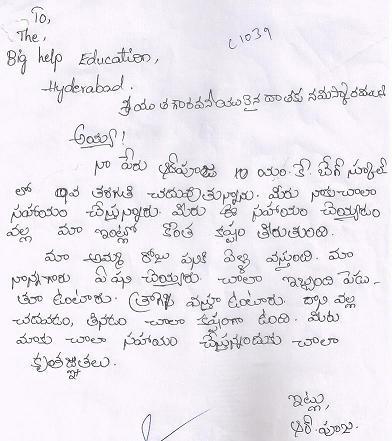 To,
The,
C1039
Big help Education,
Hyderabad.
శ్రీయుత గౌరవనీయులైన దాతకు నమస్కారములు
అయ్యా!
నా పేరు ఆర్.పూజ యం.కే. బేగ్ స్కూల్
లో 10వ తరగతి చదువుతున్నాను. మీరు నాకు చాలా
సహాయం చేస్తున్నారు. మీరు ఈ సహాయం చెయ్యడం
వల్ల మా ఇంట్లో కొంత కష్టం తీరుతుంది.
మా అమ్మ రోజు పనికి వెళ్ళి వస్తుంది. మా
నాన్నగారు ఏ పని చెయ్యరు చాలా ఇబ్బంది పెడు-
తూ ఉంటారు. త్రాగి వస్తూ ఉంటారు. దాని వల్ల
చదువడం, తినడం చాలా కష్టంగా ఉంది. మీరు
మాకు చాలా సహాయం చేస్తున్నందుకు చాలా
కృతజ్ఞతలు.
ఇట్లు,
ఆర్. పూజ.